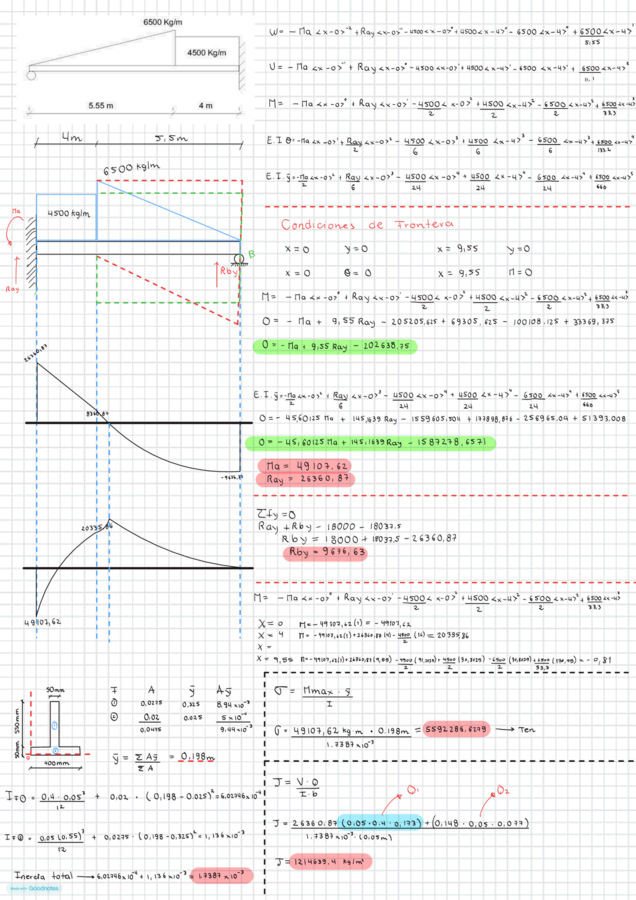 6500 Kg/m
4500 Kg/m
5.55 m
4 m
4m
5,5m
6500 kg/m
4500 kg/m
Ma
Ray
Rby
B
26360,87
8360,87
-9676,63
20335,86
49107,62
W = -Ma <x-0>⁻² + Ray <x-0>⁻¹ - 4500 <x-0>⁰ + 4500 <x-4>⁰ - 6500 <x-4>⁰ + 6500/5,55 <x-4>¹
V = -Ma <x-0>⁻¹ + Ray <x-0>⁰ - 4500 <x-0>¹ + 4500 <x-4>¹ - 6500 <x-4>¹ + 6500/11,1 <x-4>²
M = -Ma <x-0>⁰ + Ray <x-0>¹ - 4500/2 <x-0>² + 4500/2 <x-4>² - 6500/2 <x-4>² + 6500/33,3 <x-4>³
E.I θ = -Ma <x-0>¹ + Ray/2 <x-0>² - 4500/6 <x-0>³ + 4500/6 <x-4>³ - 6500/6 <x-4>³ + 6500/133,2 <x-4>⁴
E.I. ȳ = -Ma/2 <x-0>² + Ray/6 <x-0>³ - 4500/24 <x-0>⁴ + 4500/24 <x-4>⁴ - 6500/24 <x-4>⁴ + 6500/666 <x-4>⁵
Condiciones de Frontera
x = 0 y = 0 x = 9,55 y = 0
x = 0 θ = 0 x = 9,55 M = 0
M = -Ma <x-0>⁰ + Ray <x-0>¹ - 4500/2 <x-0>² + 4500/2 <x-4>² - 6500/2 <x-4>² + 6500/33,3 <x-4>³
0 = -Ma + 9,55 Ray - 205205,625 + 69305,625 - 100108,125 + 33369,375
0 = -Ma + 9,55 Ray - 202638,75
E.I. ȳ = -Ma/2 <x-0>² + Ray/6 <x-0>³ - 4500/24 <x-0>⁴ + 4500/24 <x-4>⁴ - 6500/24 <x-4>⁴ + 6500/666 <x-4>⁵
0 = -45,60125 Ma + 145,1639 Ray - 1559605,5011 + 177898,876 - 256965,04 + 51393,008
0 = -45,60125 Ma + 145,1639 Ray - 1587278,6571
Ma = 49107,62
Ray = 26360,87
Σfy = 0
Ray + Rby - 18000 - 18037,5
Rby = 18000 + 18037,5 - 26360,87
Rby = 9676,63
M = -Ma <x-0>⁰ + Ray <x-0>¹ - 4500/2 <x-0>² + 4500/2 <x-4>² - 6500/2 <x-4>² + 6500/33,3 <x-4>³
X = 0 M = -49107,62 (1) = -49107,62
X = 4 M = -49107,62 (1) + 26360,87 (4) - 4500/2 (16) = 20335,86
X =
50mm
550mm
50mm
400mm
① ②
F A ȳ Aȳ
① 0,0275 0,325 8.94x10⁻³
② 0.02 0.025 5x10⁻⁴
0,0475 9.44x10⁻³
ȳ = ΣAȳ/ΣA = 0,198m
I F② = 0,4 · 0,05³/12 + 0,02 · (0,198-0,025)² = 6,02746x10⁻⁴
I F① = 0,05 (0,55)³/12 + 0,0275 · (0,198-0,325)² = 1,136x10⁻³
Inercia total → 6,02746x10⁻⁴ + 1,136x10⁻³ = 1.7387x10⁻³
σ = Mmax · ȳ/I
σ = 49107,62 kg m · 0.198m/1.7387x10⁻³ = 5592286,6279 → Ten
J = V · Q/I · b
Q1
Q2
J = 26360.87 (0.05·0.4·0,173) + (0,148·0,05·0,077)/1.7387x10⁻³ · (0.05m)
J = 1214639,4 kg/m²
Made with Goodnotes